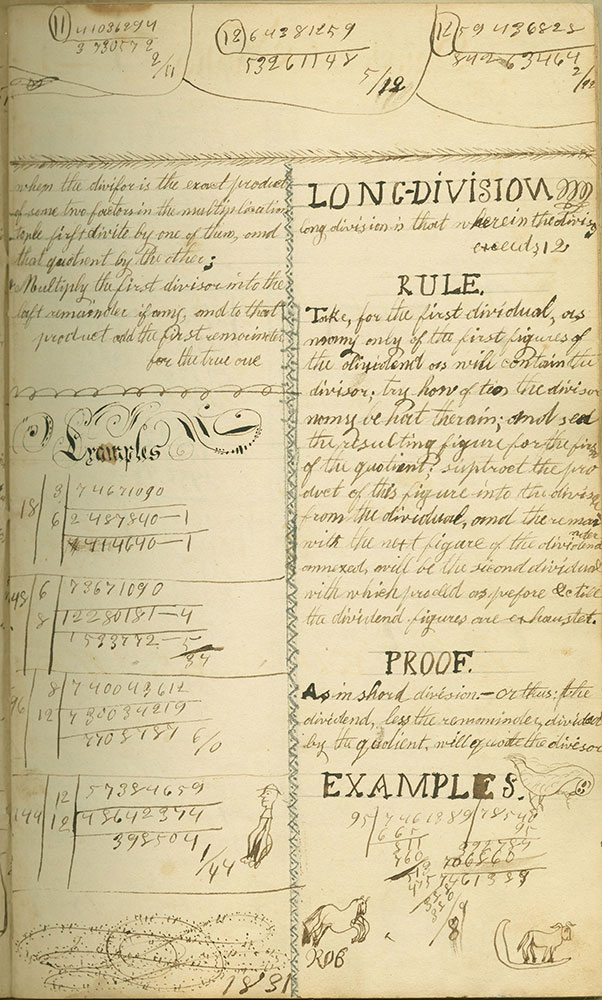 11 41036294
3 730572
2/11
12 64381259
53261148
5/12
12 59436828
842 63464
2/
when the divisor is the exact product
of some two factors in the multiplication
table first divite by one of them, and
that quotient by the other;
Multiply the first divisor into the
last remainder if any, and to that
product add the first remainder
for the true one
Examples
18 3 74671090
6 2487840—1
4414640—1
48 6 73671090
8 12280181—4
1533772—5
34
96 8 740043612
12 430034219
7708184 6/0
144 12 57384659
12 48642374
398504
1/44
1831
LONG-DIVISION
long division is that wherein the divisor
exceeds 12
RULE.
Take, for the first dividual, as
many only of the first figures of
the dividend as will contain the
divisor; try how often the divisor
may be had therain; and
the resulting figure for the first
of the quotient; suptract the pro
duct of this figure into the divisor
from the dividual, and the remai
nder
with the next figure of the dividend
annexed, will be the second dividual
with which proced as pefore &c till
the dividend figures are exhaustet.
PROOF.
As in short division.— or thus: the
dividend, less the remaninder, divided
by the quotient, will quote the divisor
EXAMPLES.
95 7461389 78548
665 95
811
760
ROB